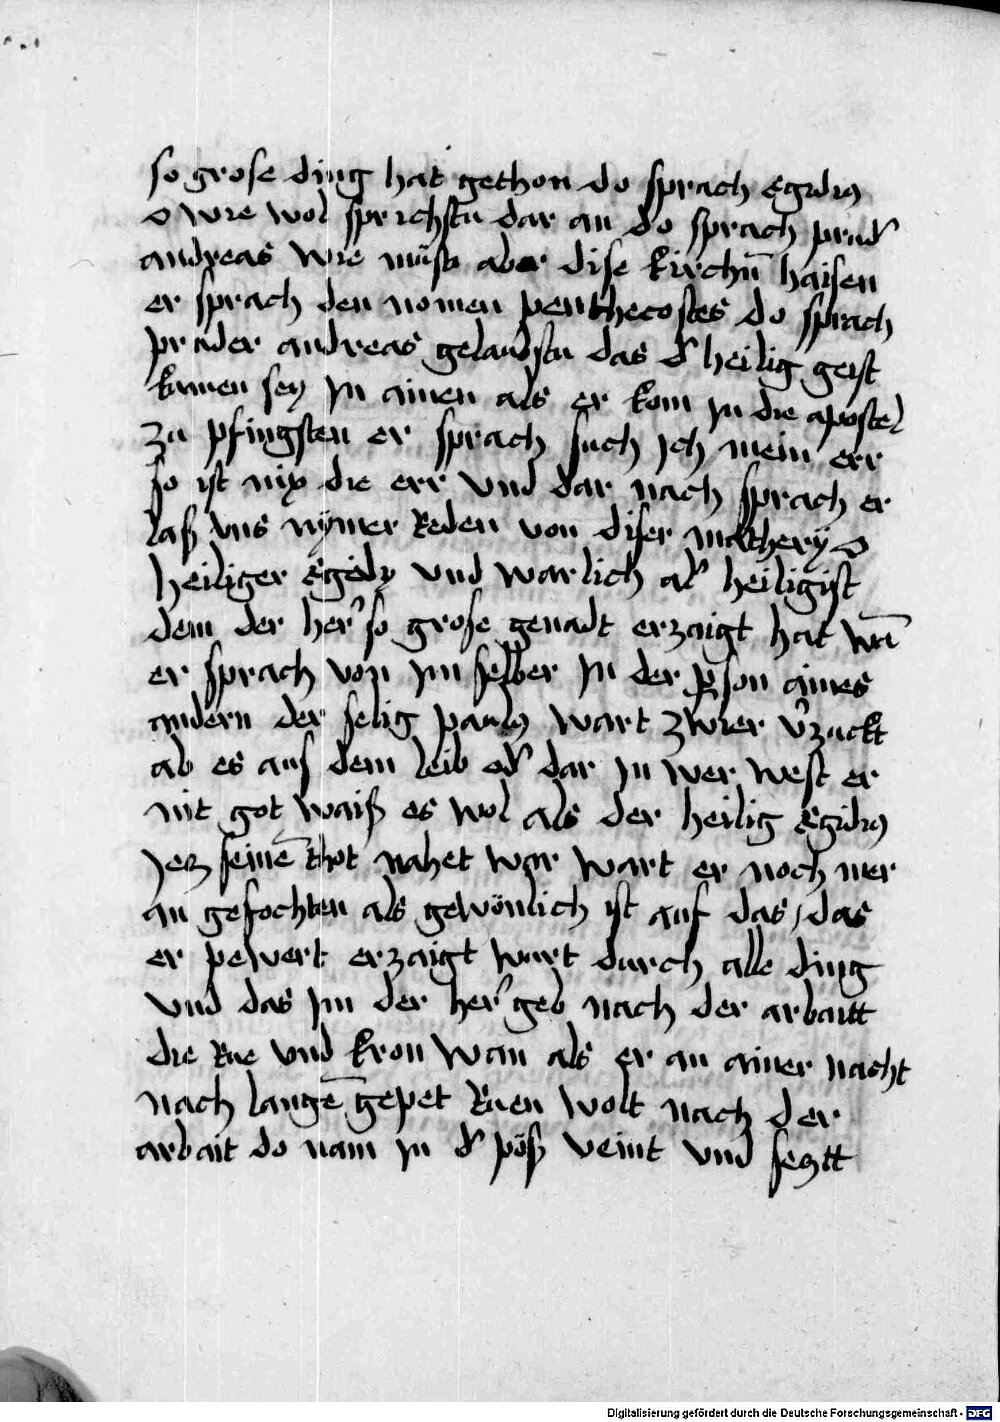 so grose ding hat gethon do sprach Egidiꝯ
o wie wol sprichstu dar an do sprach prudˀ
andreas wie müst aber dise kirchñ haisen
er sprach den nomen penthecostes do sprach
pruder andreas gelaubstu das dˀ heilig geist
kumen sey jn ainen als er kom jn die apostel
zu pfingsten er sprach such jch mein err
so ist nix die err vnd dar nach sprach er
laß vns nÿmer Reden von diser mathery o
heiliger Egidy vnd warlich alˀ heiligist
dem der herˀ so grose genadt erzaigt hat wā
er sprach von jm selber jn der ꝑson aines
andern der selig paulꝯ wart zwier vˀzuckt
ab es auf dem leib odˀ dar jn wer west er
nit got waiß es wol als der heilig Egidiꝯ
jecz seinē thot nahet wor wart er noch mer
an gefochten als gewönlich ist auf das / das
er pewert erzaigt wurt durch alle ding
vnd das jm der herˀ geb nach der arbaitt
die Rue vnd kron wan als er an ainer nacht
nach langē gepet Ruen wolt nach der
arbait do nam jn dˀ pöß veint vnd seczt
Digitalisierung gefördert durch die Deutsche Forschungsgemeinschaft - DFG